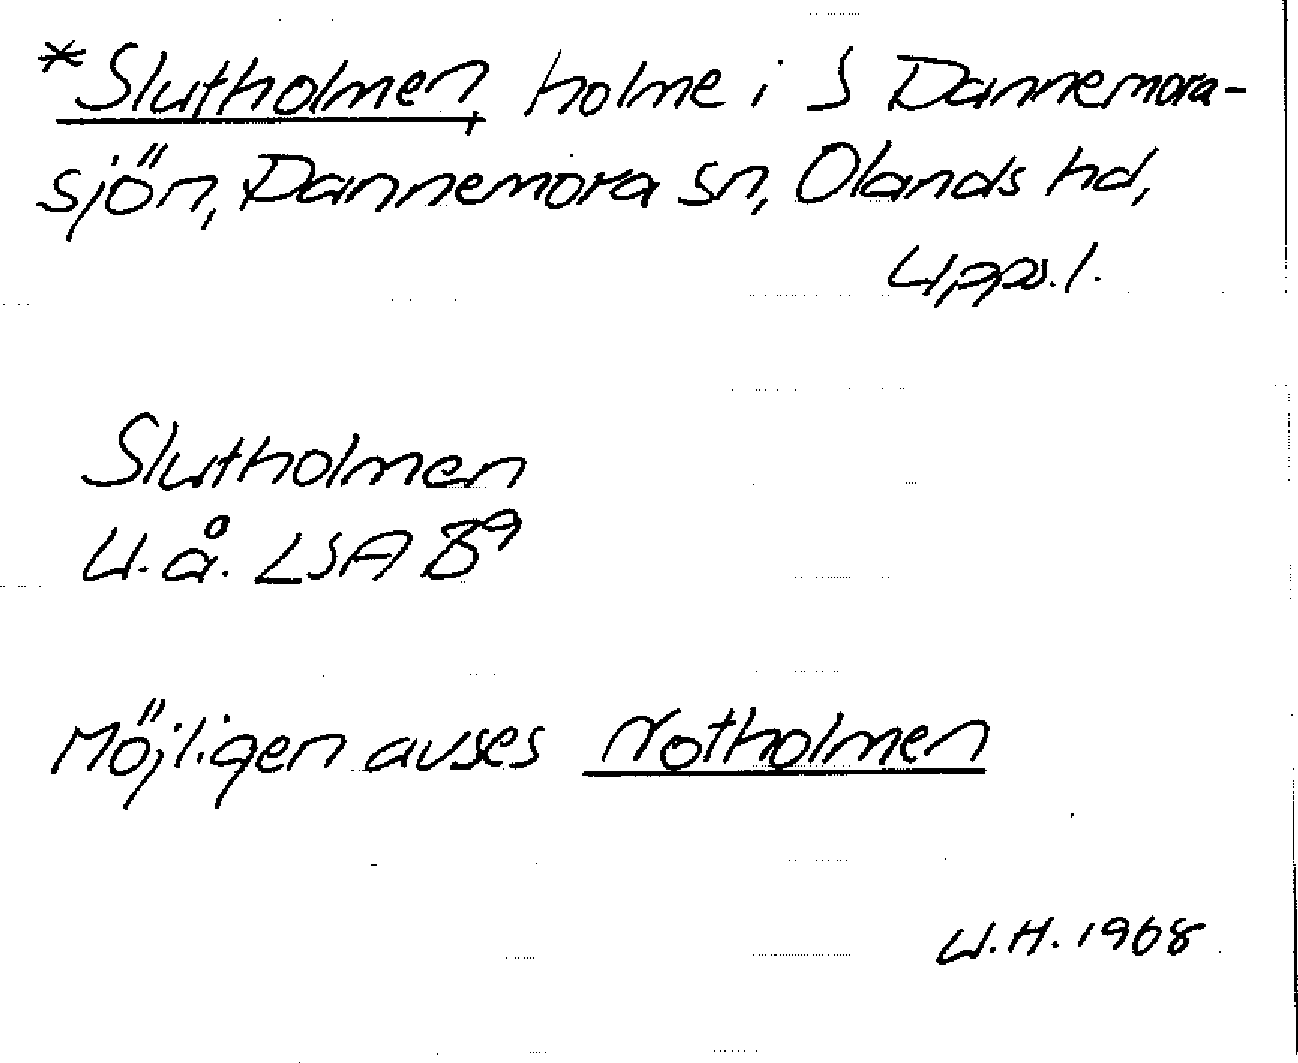 *Slutholmen, holme i S Dannemora-
sjön, Dannemora sn, Olands hd,
Upps. l.
Slutholmen
U.å. LSA B⁹
Möjligen avses Notholmen
U.H. 1968